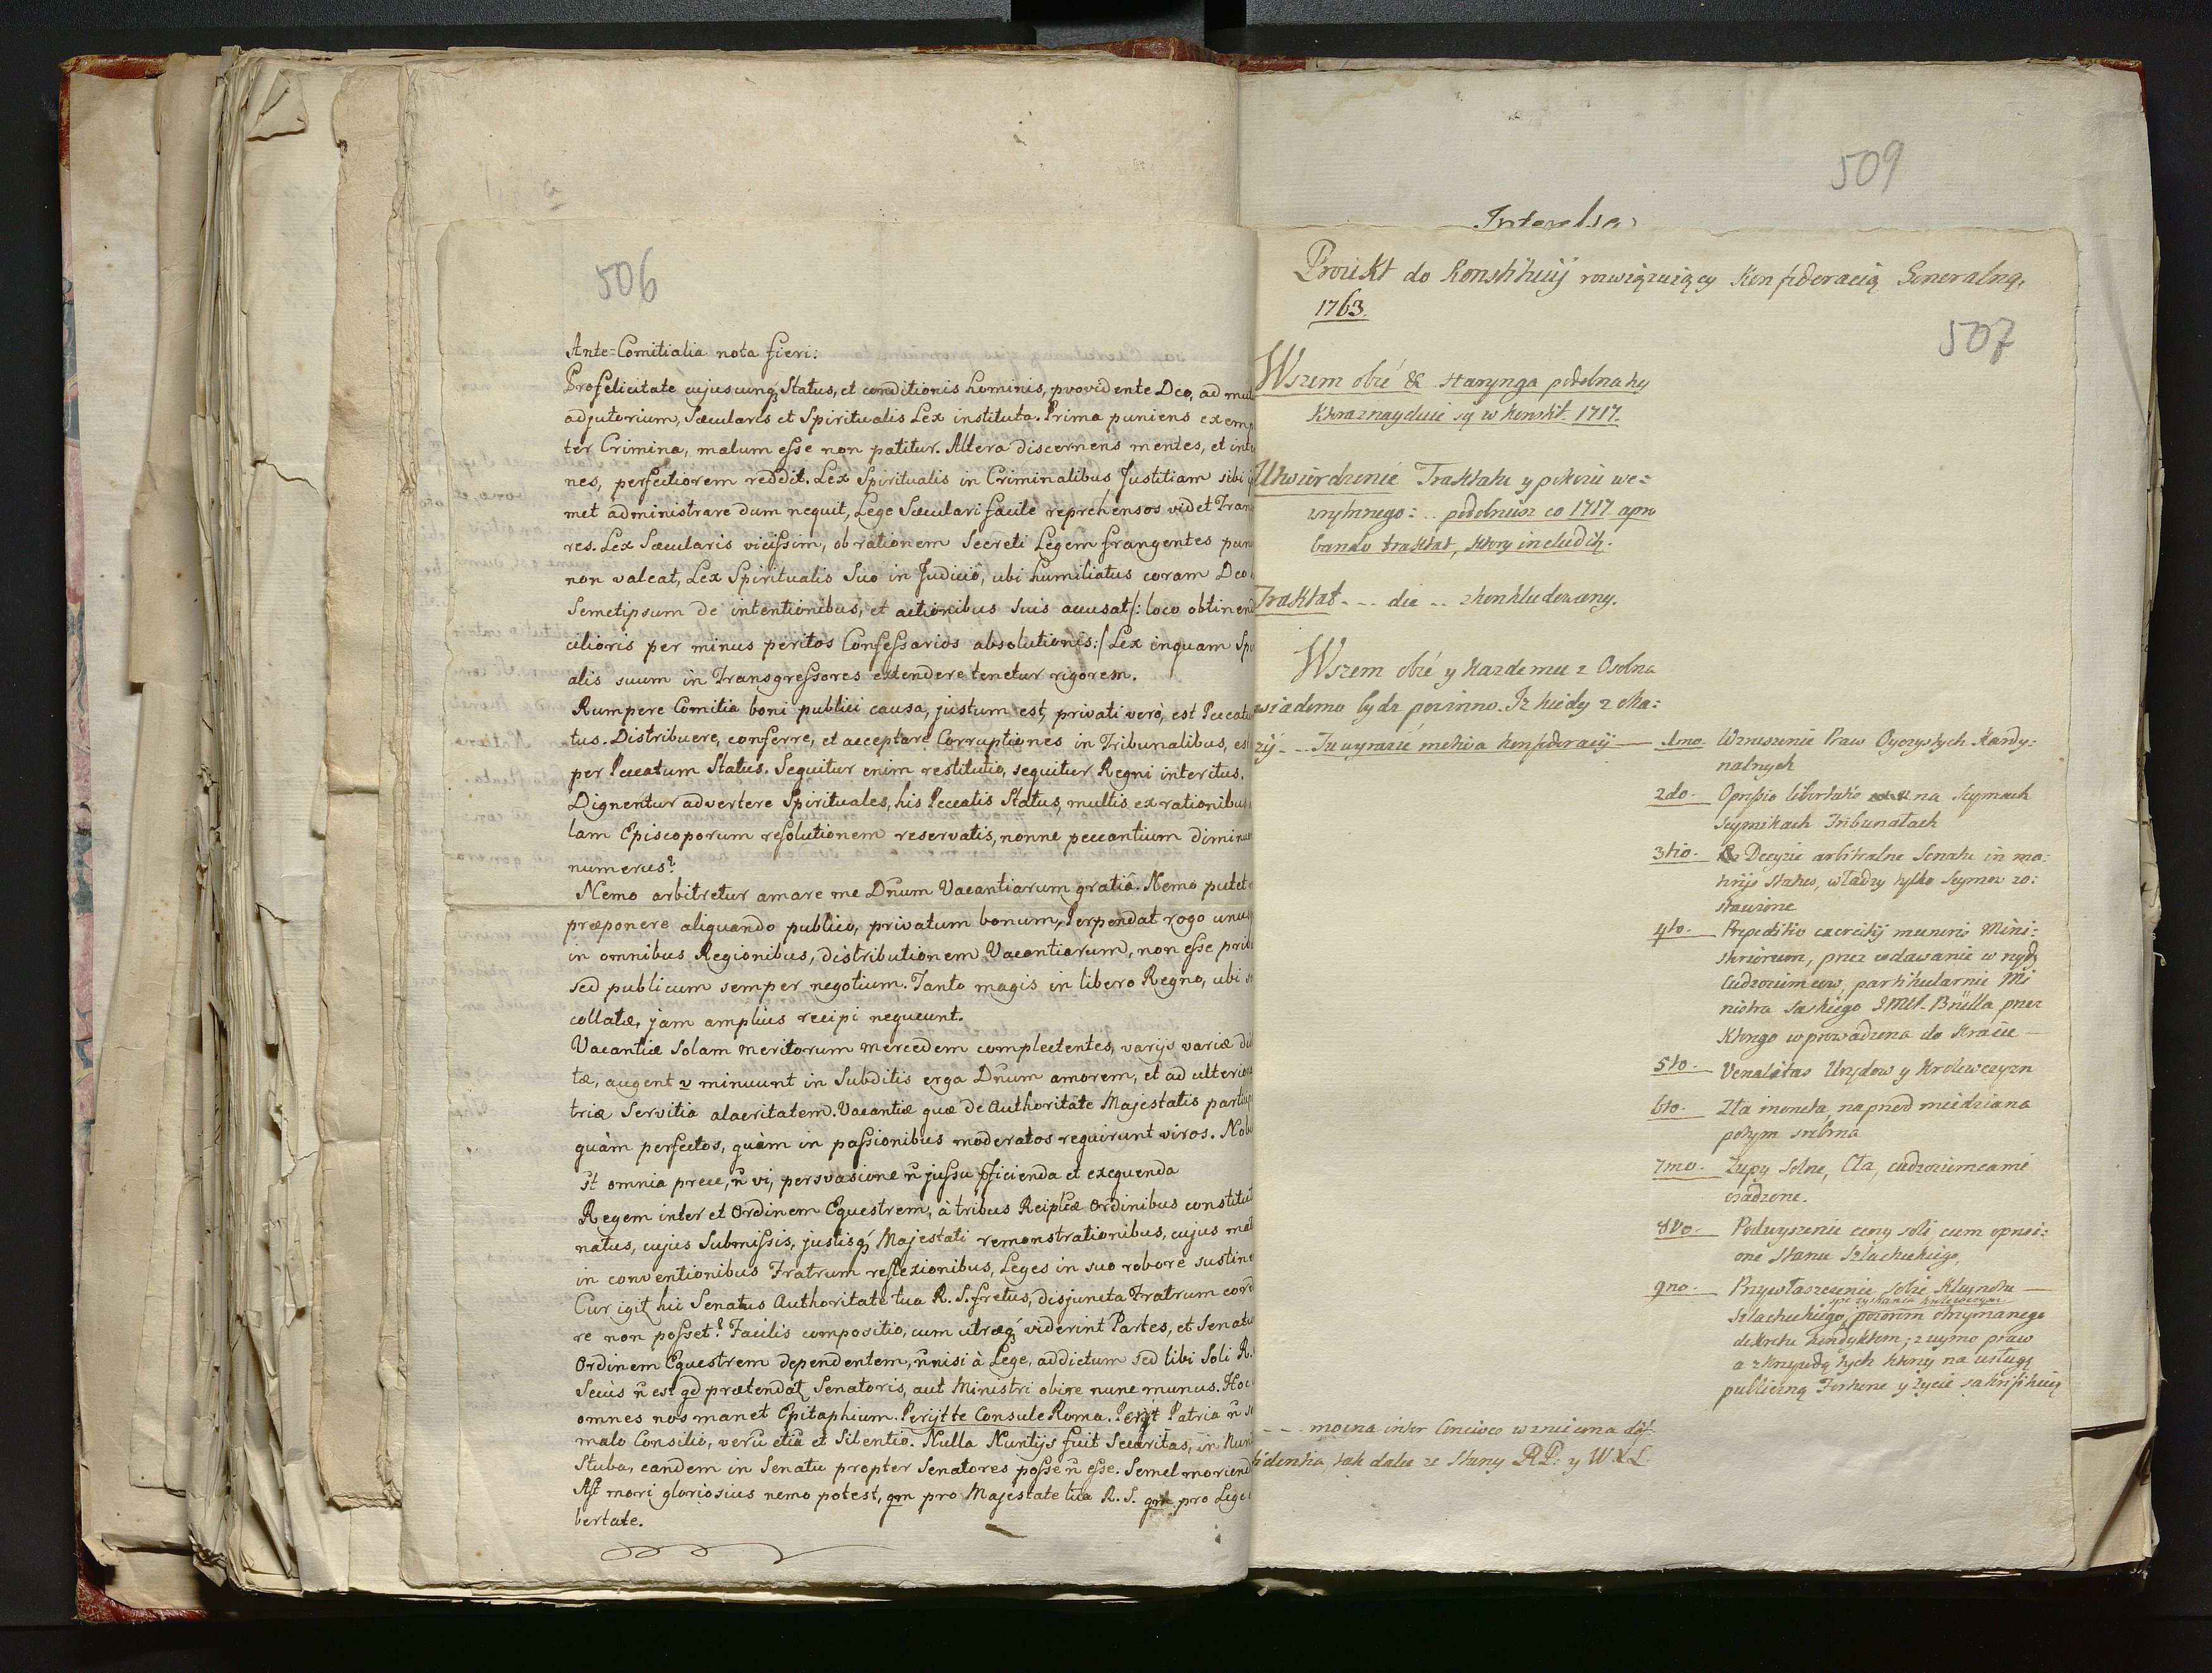 506
Ante=Comitialia nota fieri:
Pro felicitate cujuscunq; Status, et conditionis hominis, providente Deo, ad mut
adjutorium, Sæcularis et Spiritualis Lex instituta. Prima puniens exemp
ter Crimina, malum esse non patitur. Altera discernens mentes, et int
nes, perfectiorem reddit. Lex Spiritualis in Criminalibus Justitiam sibi
met administrare dum nequit, Lege Sæculari facile reprehensos videt Tran
res. Lex Sæcularis vicissim, ob rationem Secreti Legem frangentes pun
non valeat, Lex Spiritualis Suo in Judicio, ubi humiliatus coram Deo
Semetipsum de intentionibus, et actionibus suis accusat /: loco obtinend
cilioris per minus peritos Confessarios absolutionis:/ Lex inquam Sp
alis suum in Transgressores extendere tenetur rigorem.
Rumpere Comitia boni publici causa, justum est, privati verò, est Peccatu
tus. Distribuere, conferre, et acceptare Corruptiones in Tribunalibus, est
per Peccatum Status. Sequitur enim restitutio, sequitur Regni interitus.
Dignentur advertere Spirituales, his Peccatis Status, multis ex rationibus
lam Episcoporum resolutionem reservatis, nonne peccantium diminu
numerus?
Nemo arbitretur amare me Dnum Vacantiarum gratiâ. Nemo putet
præponere aliquando publico, privatum bonum, Perpendat rogo unus
in omnibus Regionibus, distributionem Vacantiarum, non esse priv
sed publicum semper negotium. Tanto magis in libero Regno, ubi s
collatæ, jam amplius recipi nequeunt.
Vacantiæ Solam meritorum mercedem complectentes, varijs variæ di
tæ, augent v minuunt in Subditis erga Dnum amorem, et ad ulterior
triæ Servitia alacritatem. Vacantiæ quæ de Authoritate Majestatis partici
quàm perfectos, quàm in passionibus moderatos requirunt viros. Nob
st omnia prece, ñ vi, persvasione ñ jussu pficienda et exequenda
Regem inter et Ordinem Equestrem, à tribus Reiplcæ Ordinibus constitut
natus, cujus Submissis, justisq; Majestati remonstrationibus, cujus mat
in conventionibus Fratrum reflexionibus, Leges in suo robore sustine
Cur igit hii Senatus Authoritate tua R. S. fretus, disjuncta Fratrum cord
re non posset? Facilis compositio, cum utræq; viderint Partes, et Senatu
Ordinem Equestrem dependentem, ñ nisi à Lege, addictum sed tibi Soli R.
Secùs ñ est qd prætendat Senatoris, aut Ministri obire nunc munus. Hoc
omnes nos manet Epitaphium. Perijt te Consule Roma. Perijt Patria ñ s
malo Consilio, verũ etiã et Silentio. Nulla Nuntijs fuit Securitas, in Nunt
Stuba, eandem in Senatu propter Senatores posse ñ esse. Semel moriend
Ast mori gloriosius nemo potest, qm pro Majestate tua R. S. qm pro Lege
bertate.
509
Interessa
Proiekt do Konstitucij rozwiązuiący Konfederacią Generalną,
1763.
507
Wszem obec &c. Starynga podobna tey
Ktora znayduie się w konstit. 1717.
Utwierdzenie Traktatu y pokoiu we=
wnętrznego: .. podobnież co 1717 apro
bando traktat, ktory includitz.
Traktat - - - die .. zkonkludowany.
Wszem obec y kazdemu z Osobna
wiadomo bydz powinno. Iz kiedy z oka:
zij - - Tu wyrazić motiva konfederacij
1mo. Wzruszenie Praw Oyczystych Kardy:
nalnych
2do. Opressio libertatis na Seymach
Seymikach Tribunałach
3tio. Decyzie arbitralne Senatu in ma:
terijs status, władzy tylko Seymow zo:
stawione
4to. Impeditio exercitij muneris Mini:
steriorum, przez wdawanie w rząd
Cudzoziemcow, partikularnie Mi
nistra Saskiego JMCi Brülla przez
Ktorego wprowadzona do Kraiu
5to. Venalitas Urzędow y Krolewczyzn
6to. Zła moneta, naprzod miedziana
potym srebrna
7mo. Żupy Solne, Cła, cudzoziemcami
osadzone.
8vo. Podwyzszenie ceny soli cum opressi:
one Stanu Szlacheckiego,
9no. Przywłaszczenie sobie Kleynotu
Szlacheckiego, pozorem otrzymanego
dekretu kondyktem; z uymą praw
a z krzywdą tych ktorzy na usługę
publiczną Fortune y życie sakrifikuią
- - - mocna inter Concives wzniecona dif-
fidentia, tak dalece ze Stany RP: y W.X.L.